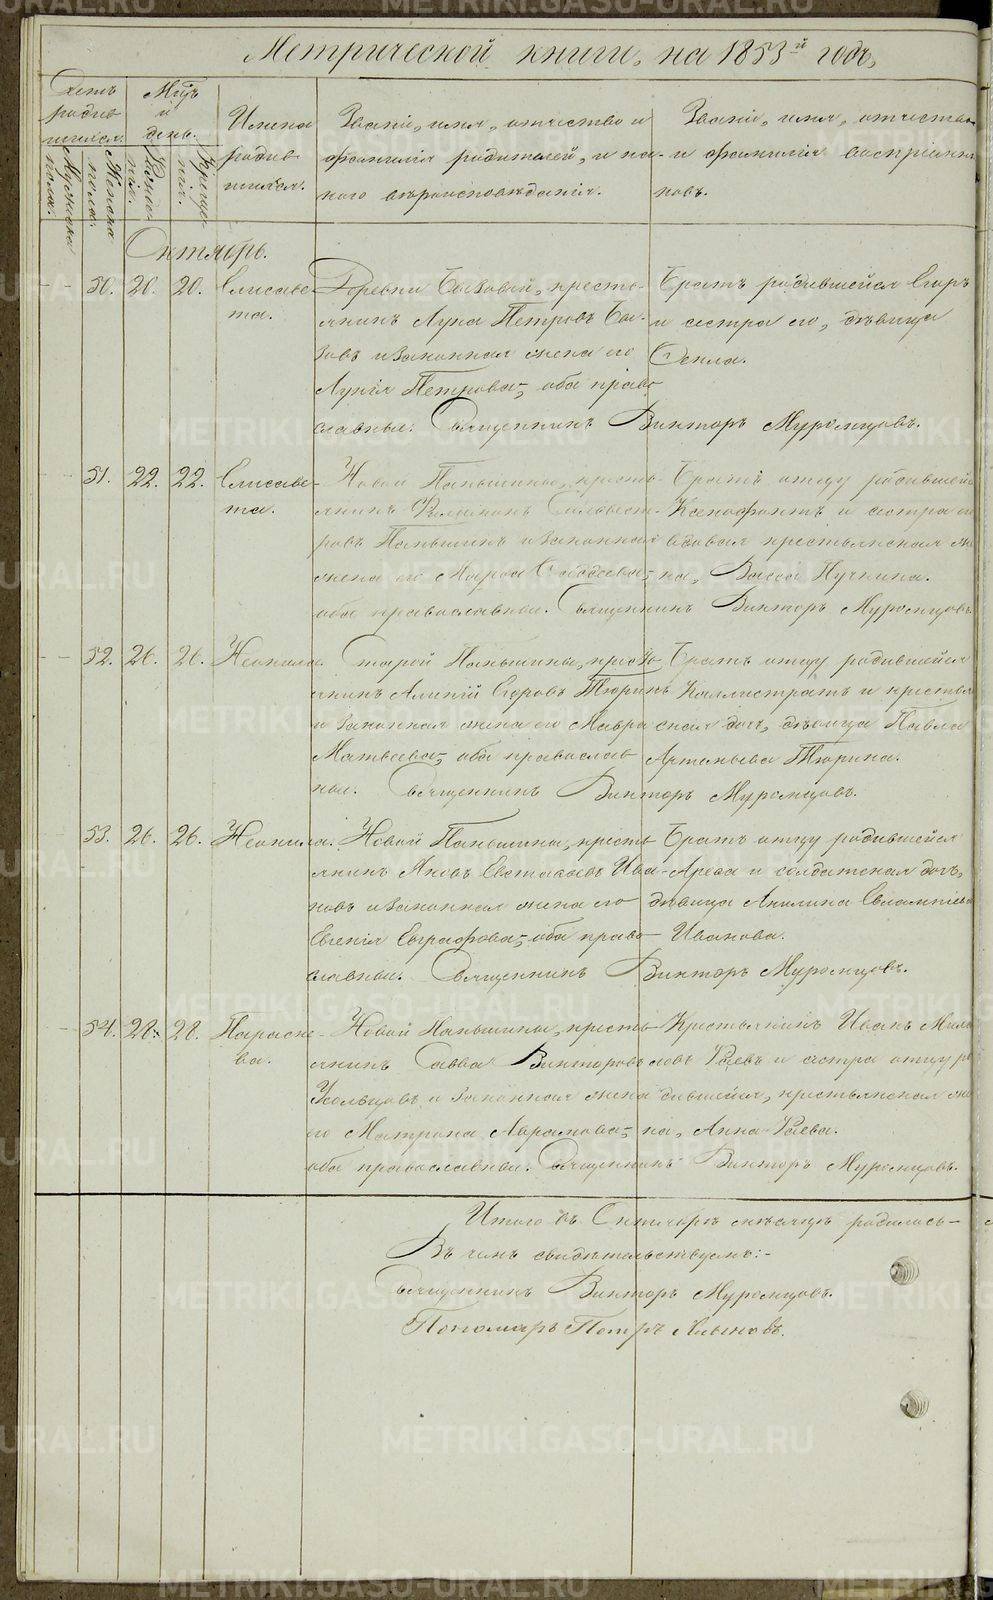 Метрической книги, на 1853й годъ,
Счетъ родившихся.
Мужеска пола.
Женска пола.
Мѣсяцъ и день.
Рожденія.
Крещенія.
Имена родившихся.
Званіе, имя, отчество и
фамилія родителей, и ка-
кого вѣроисповѣданія.
Званіе, имя, отчество
и фамилія воспріемни
ковъ.
Октябрь.
50. 20. 20. Елисаве-
та.
Деревни Быковой, кресть-
янинъ Лука Петровъ Бы-
ковъ и законная жена его
Лукія Петрова, оба право
славные. Священникъ Викторъ Муромцовъ.
Братъ родившейся Егоръ
и сестра его, дѣвица
Фекла.
51. 22. 22. Елисаве-
та.
Новой Паньшины, кресть-
янинъ Филимонъ Сильвест-
ровъ Паньшинъ и законная
жена его Марфа
оба православные. Священникъ Викторъ Муромцовъ.
Братъ отцу родившей
Ксенофонтъ и сестра
вдовая крестьянская же
на, Васса Пучкина.
52. 26. 26. Неонила.
Старой Паньшины, кресть
янинъ Алексій Егоровъ Тюринъ
и законная жена его Мавра
Матвѣева, оба православ
ные. Священникъ Викторъ Муромцовъ.
Братъ отцу родившейся
Каллистратъ и крестьян
ская дочь, дѣвица Павла
Артемьева Тюрина.
53. 26. 26. Неонила.
Новой Паньшины, кресть
янинъ Яковъ Евстафьевъ Ива-
новъ и законная жена его
Евгенія Евграфова, оба право
славные. Священникъ Викторъ Муромцовъ.
Братъ отцу родившейся
Арефа и солдатская дочь,
дѣвица Акилина Евлампіева
Иванова.
54. 28. 28. Параске-
ва.
Новой Паньшины, кресть
янинъ Савва Викторовъ
Усольцовъ и законная жена
его Матрона Аврамова,
оба православные. Священникъ Викторъ Муромцовъ.
Крестьянинъ Иванъ
и сестра отцу ро
дившейся, крестьянская же
на, Анна
Итого въ Октябрѣ мѣсяцѣ родилось-
Въ чемъ свидѣтельствуемъ:-
Священникъ Викторъ Муромцовъ.
Пономарь Петръ
METRIKI.GASO-URAL.RU